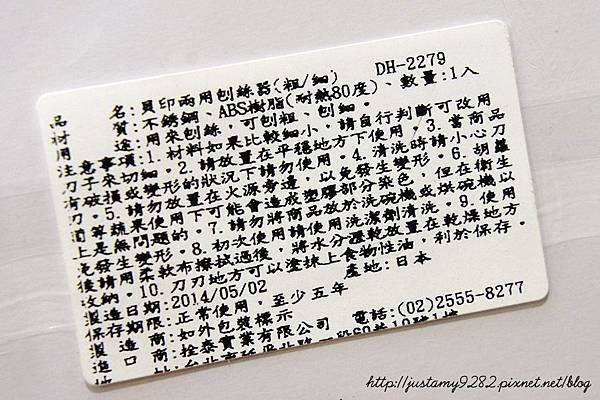 DH-2279
品 名:貝印兩用刨絲器(粗/細)
材 質:不銹鋼、ABS樹脂(耐熱80度)、數量:1入
用 途:用來刨絲,可刨粗、刨細。
注意事項:1.材料如果比較細小,請自行判斷可改用
刀子來切細。2.請放置在平穩地方下使用。3.當商品
有破損或變形的狀況下請勿使用。4.清洗時請小心刀
刃。5.請勿放置在火源旁邊,以免發生變形。6.胡蘿
蔔等蔬果使用下可能會造成塑膠部分染色,但在衛生
上是無問題的。7.請勿將商品放於洗碗機或烘碗機以
免發生變形。8.初次使用請使用洗潔劑清洗。9.使用
後請用柔軟布擦拭過後,將水分瀝乾放置在乾燥地方
收納。10.刀刃地方可以塗抹上食物性油,利於保存。
製造日期:2014/05/02 產地:日本
保存期限:正常使用,至少五年
製 造 商:如外包裝標示
進 口 商:拴泰實業有限公司 電話:(02)2555-8277
http://justamy9282.pixnet.net/blog